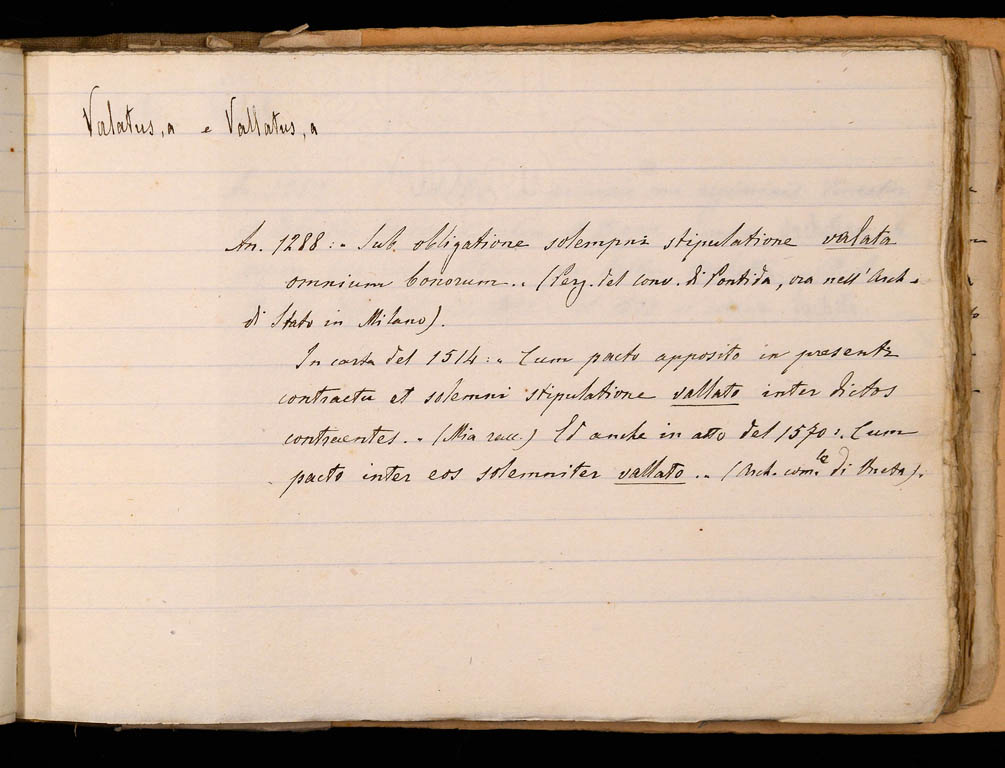 Valatus, a e Vallatus, a
An. 1288: „ Sub obligatione solempni stipulatione valata
omnium bonorum „. (Perg. del conv. di Pontida, ora nell'Arch.
di Stato in Milano).
In carta del 1514: „ Cum pacto apposito in presenti
contractu et solemni stipulatione vallato inter dictos
contraentes. „ (Mia racc.) Ed anche in atto del 1570: „ Cum
pacto inter eos solemniter vallato „. (Arch. com.le di Oneta).